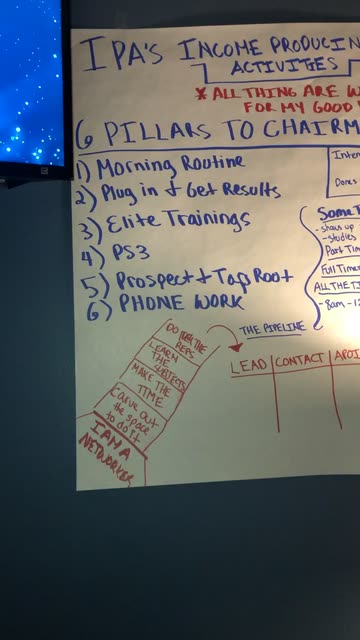 IPA'S INCOME PRODUCIN
ACTIVITIES
* ALL THING ARE W
FOR MY GOOD
6 PILLARS TO CHAIRM
1) Morning Routine
2) Plug in + Get Results
3) Elite Trainings
4) PS3
5) Prospect + Tap Root
6) PHONE WORK
Inten
Dones
Some T
- shows up
- studies
Part Tim
Full Timer
ALL THE TI
- 8am - 12
THE PIPELINE
LEAD CONTACT APOI
DO THE
REPS
LEARN
THE SUBJECTS
MAKE THE
TIME
Carve out
the space
to do it
I AM A
NETWORKER